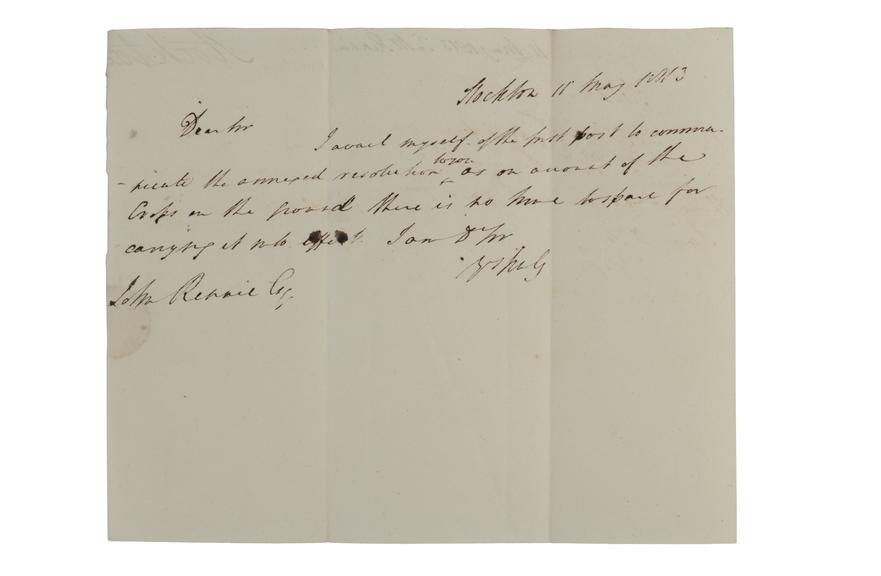 Stockton 11 May 1813
Dear Sir
I avail myself of the first post to commu-
-nicate the annexed resolution to you as on account of the
Crops on the ground there is no time to spare for
carrying it into effect. I am Dr Sir
John Rennie Esq.